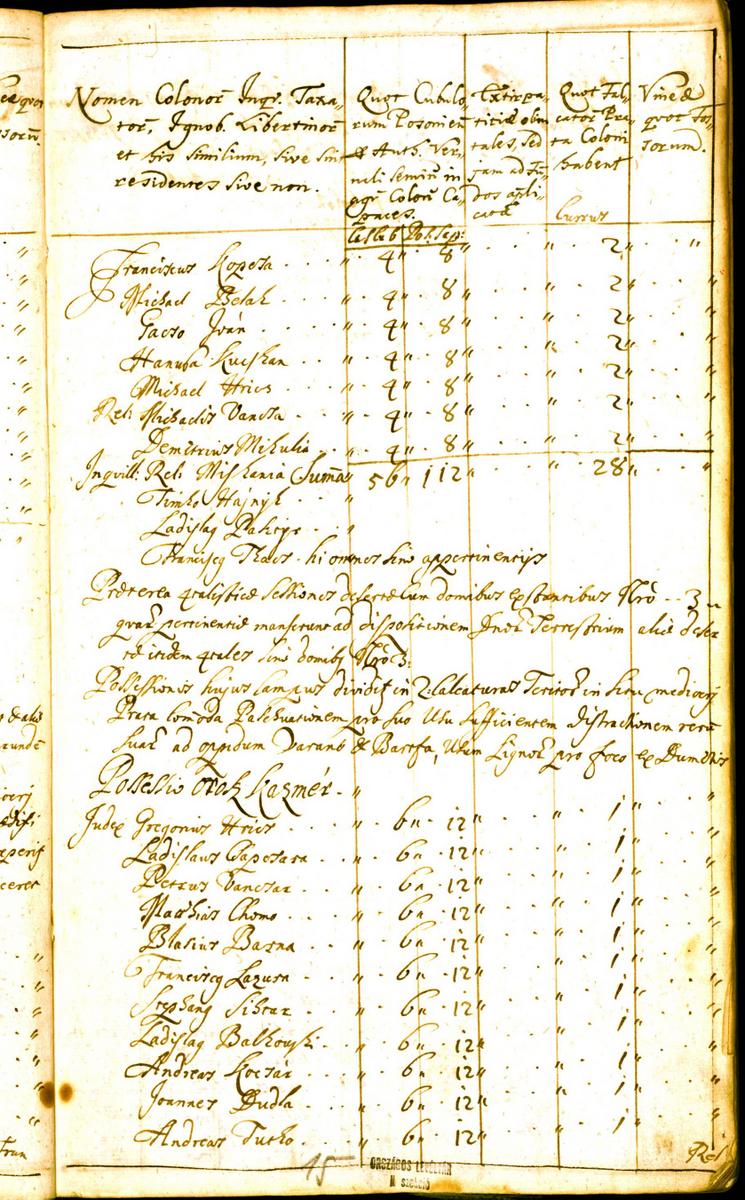 Nomen Colonor Inqr. Taxa=
tor, Ignob. Libertinor
et his similium, sive sint
residentes sive non.
Quot Cubulo,
rum Posonien
& Auth. Ver,
nali semin in
agr Color Ca,
paces.
Extirpa,
titiæ olim
tales, sed
jam ad Fu
dos appli
catæ
Quot Fal,
cator Pra,
ta Coloni
habent
Currus
Vineæ
quot Fos,
sorum.
Cas Cub Pos. Sap:
Franciscus Kopcsa . . . " . 4" . 8" . . " . . 2" . . "
Michael Belak . . . " . 4" . 8" . . " . . 2" . . "
Gacso Iván . . . " . 4" . 8" . . " . . 2" . . "
Hanusa Kucskan . . " . 4" . 8" . . " . . 2" . . "
Michael Hrics . . . " . 4" . 8" . . " . . 2" . . "
Rel: Michaelis Vancsa . . " . 4" . 8" . . " . . 2" . . "
Demetrius Mihulia . . " . 4" . 8" . . " . . 2" . . "
Inqvill: Rel: Miskania Suma 56" 112" . . " . . 28" . . "
Timko Hajnyk . . "
Ladislaq Pakcye . . "
Franciscq Tkacs . hi omnes sine appertinentijs
Præterea 4talisticæ sessiones desertæ cum domibus exstantibus Nro . . 3 "
quar pertinentiæ manserunt ad dispositionem Dnor Terrestrium aliæ deser
tæ itidem 4tales sine domibq Nro 3:
Possessionis hujus Campus dividit in 2: Calcaturas Territor in situ mediocrj
Prata Comoda Pascuationem pro suo Usu sufficientem distractionem reru
suar ad oppidum Varano & Bartfa, Usum Lignor pro foco ex Dumetis
Possessio Orosz Kazmér . "
Judex Gregorius Hrics . . . " . 6" . 12" . . " . . 1" . . "
Ladislaus Csapcsara . . " . 6" . 12" . . " . . 1" . . "
Petrus Vancsar . . " . 6" . 12" . . " . . 1" . . "
Matthias Chomo . . . " . 6" . 12" . . " . . 1" . . "
Blasius Bazna . . . " . 6" . 12" . . " . . 1" . . "
Franciscq Lazura . . " . 6" . 12" . . " . . 1" . . "
Stephanq Sihtar . . " . 6" . 12" . . " . . 1" . . "
Ladislaq Balkovski . . " . 6" . 12" . . " . . 1" . . "
Andreas Kocsár . . . " . 6" . 12" . . " . . 1" . . "
Joannes Dudla . . . " . 6" . 12" . . " . . 1" . . "
Andreas Tutko . . . " . 6" . 12" . . " . . 1" . . "
Rel
15
ORSZÁGOS LEVÉLTÁR
N szekció